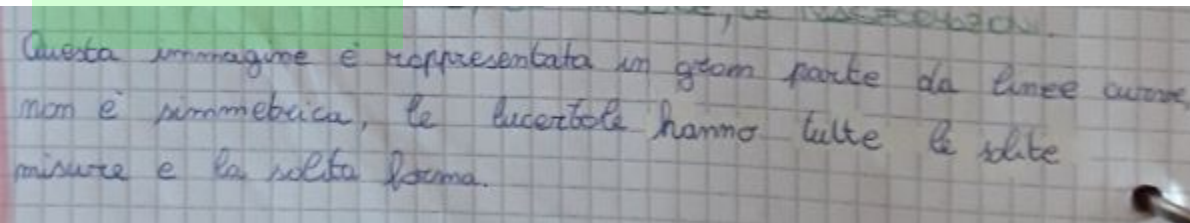 Questa immagine è rappresentata in gran parte da linee curve,
non è simmetrica, le lucertole hanno tutte le solite
misure e la solita forma.